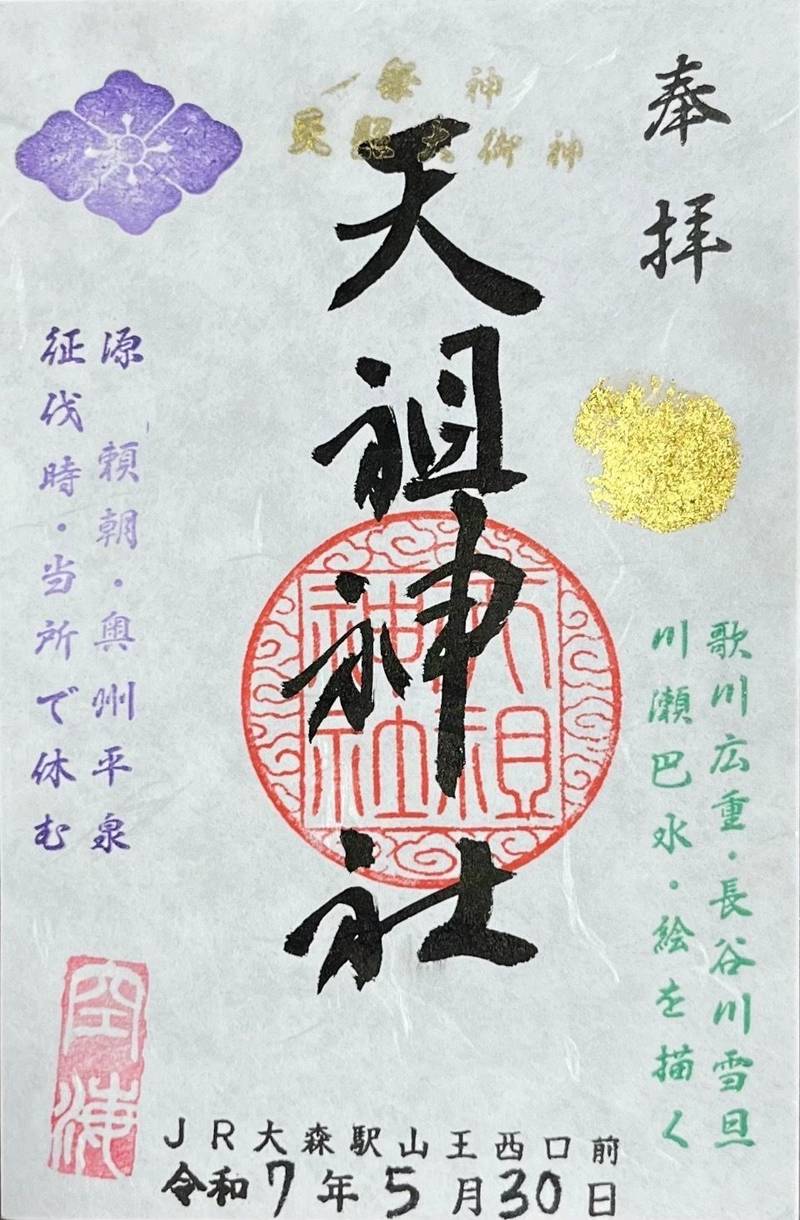 奉拝
祭神
天照大御神
天祖神社
天祖神社
歌川広重・長谷川雪旦
川瀬巴水・絵を描く
源頼朝・奥州平泉
征伐時・当所で休む
空海
JR大森駅山王西口前
令和7年5月30日